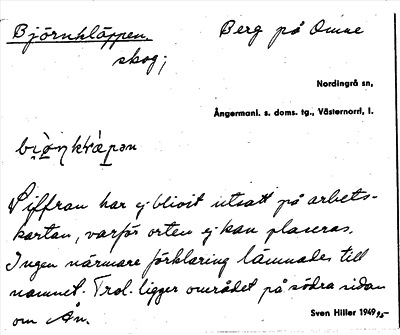 Björnkläppen. Berg på Omne
skog;
Nordingrå sn,
Ångermanl. s. doms. tg., Västernorrl, l.
Siffran har ej blivit utsatt på arbets-
kartan, varför orten ej kan placeras.
Ingen närmare förklaring lämnades till
namnet. Trol. ligger området på södra sidan
om Ån.
Sven Hiller 1949